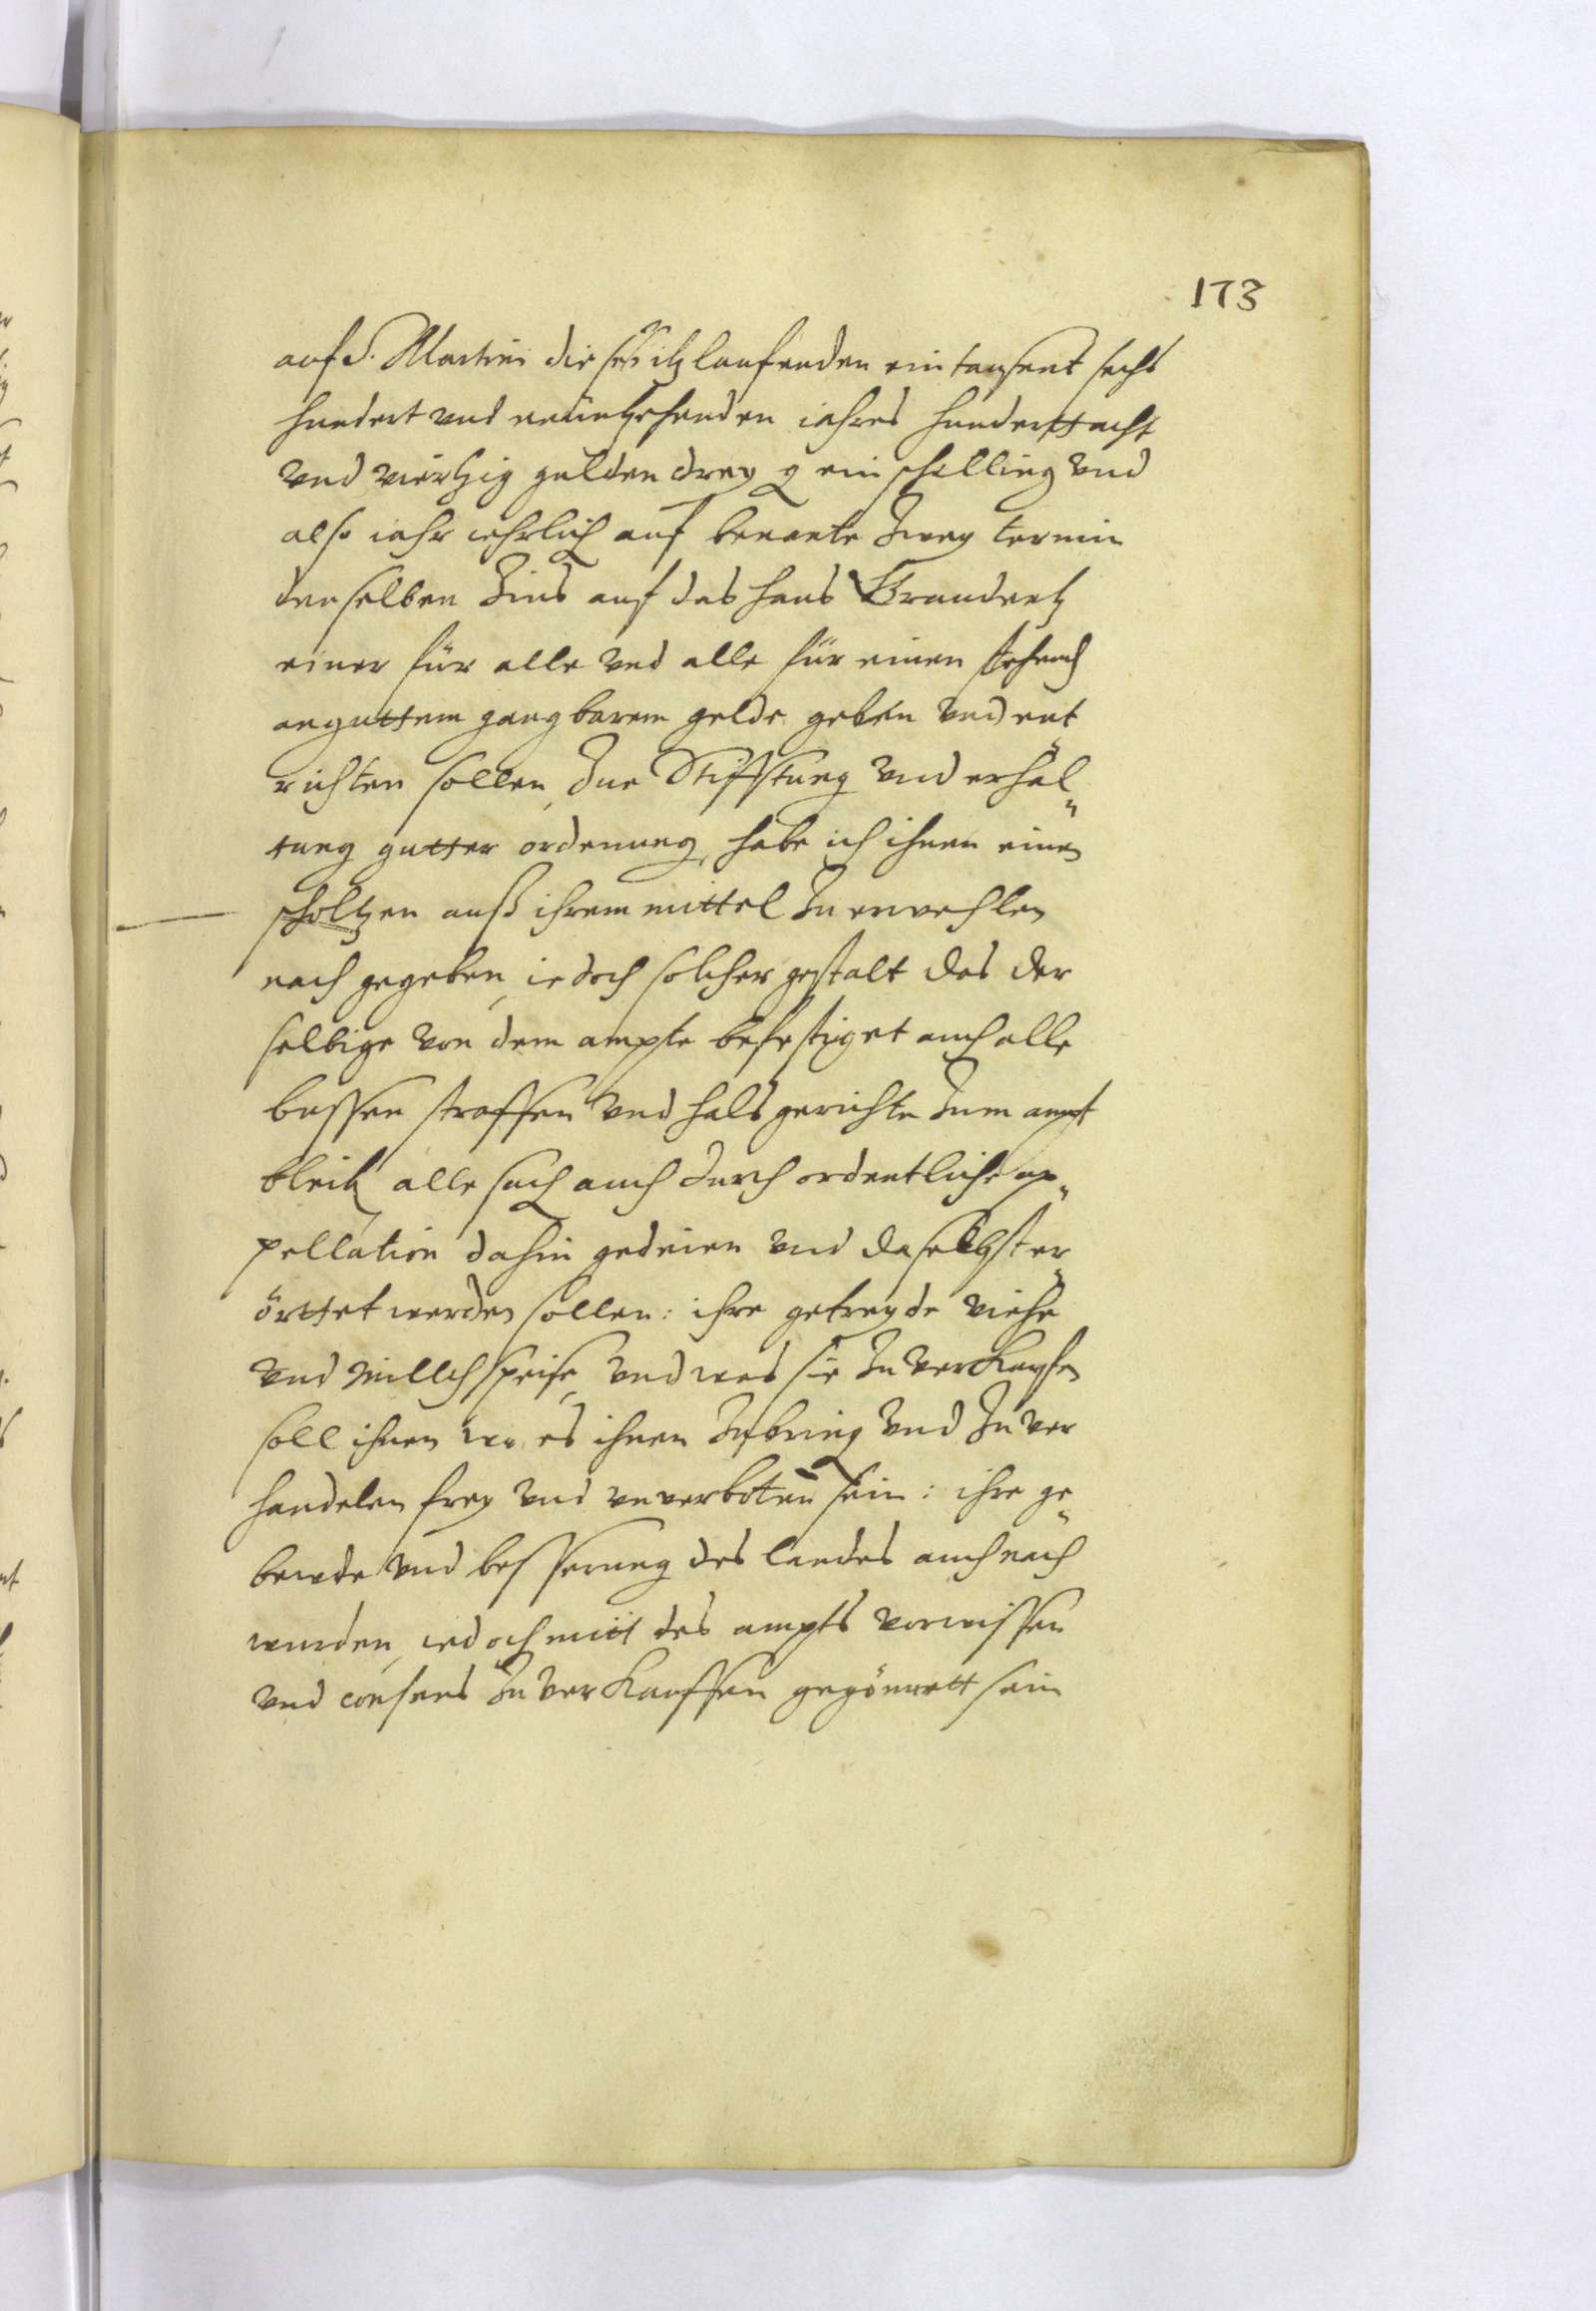 173
auf S. Martini dieses itzlaufenden eintausent sechs
hundert vnd neuntzehenden iahres hunderttacht
vnd viertzig gulden drey g ein schilling vnd
also iahr iehrlich auf benante Zwey termin
denselben Zins auf das haus Graudentz
einer für alle vnd alle für einen stehend
anguttem gangbarem gelde geben vnd ent
richten sollen, Zur Stifftung vnd erhal„
tung gutter ordenung, habe ich ihnen einen
scholtzen auß ihrem mittel Zu erwehlen
nach gegeben, iedoch solcher gestalt das der
selbige von dem ampte befestiget auch alle
bussen straffen vnd halsgerichte Zum ampt
bleib alle sach auch durch ordentliche ap„
pellation dahin gedeien vnd daselbst er„
örttet werden sollen: ihre getreyde viehe
vnd Millch speise, vnd was sie Zu verkaufen
soll ihnen wo es ihnen Zubring vnd Zu ver
handelen frey vnd vnverboten sein: ihre ge„
bewde vnd besserung des landes auch nach
wurden, iedoch mitt des ampts vorwissen
vnd consens Zu verkauffen gegönnett sein